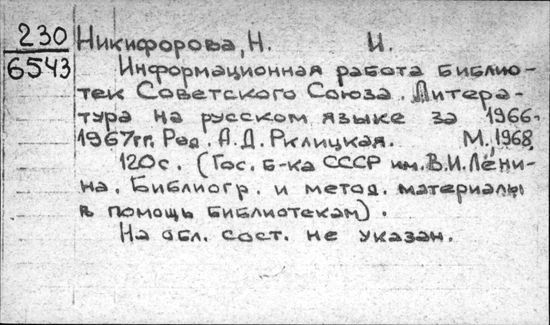 230 Никифорова, Н. И.
6543 Информационная работа библио-
тек Советского Союза. Литера-
тура на русском языке за 1966-
1967гг. Ред. А.Д. Рклицкая. М., 1968,
120с. (Гос. б-ка СССР им. В.И. Лени-
на. Библиогр. и метод. материалы
в помощь библиотекам).
На обл. сост. не указан.